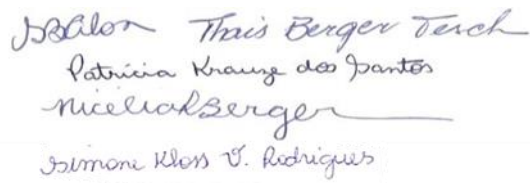 Thais Berger Terch
Patrícia Krauze dos Santos
Nicelia R Berger
Simone Kloss V. Rodrigues